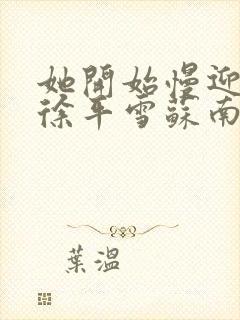 她開始慢迎
徐平雪蘇南
葉溫